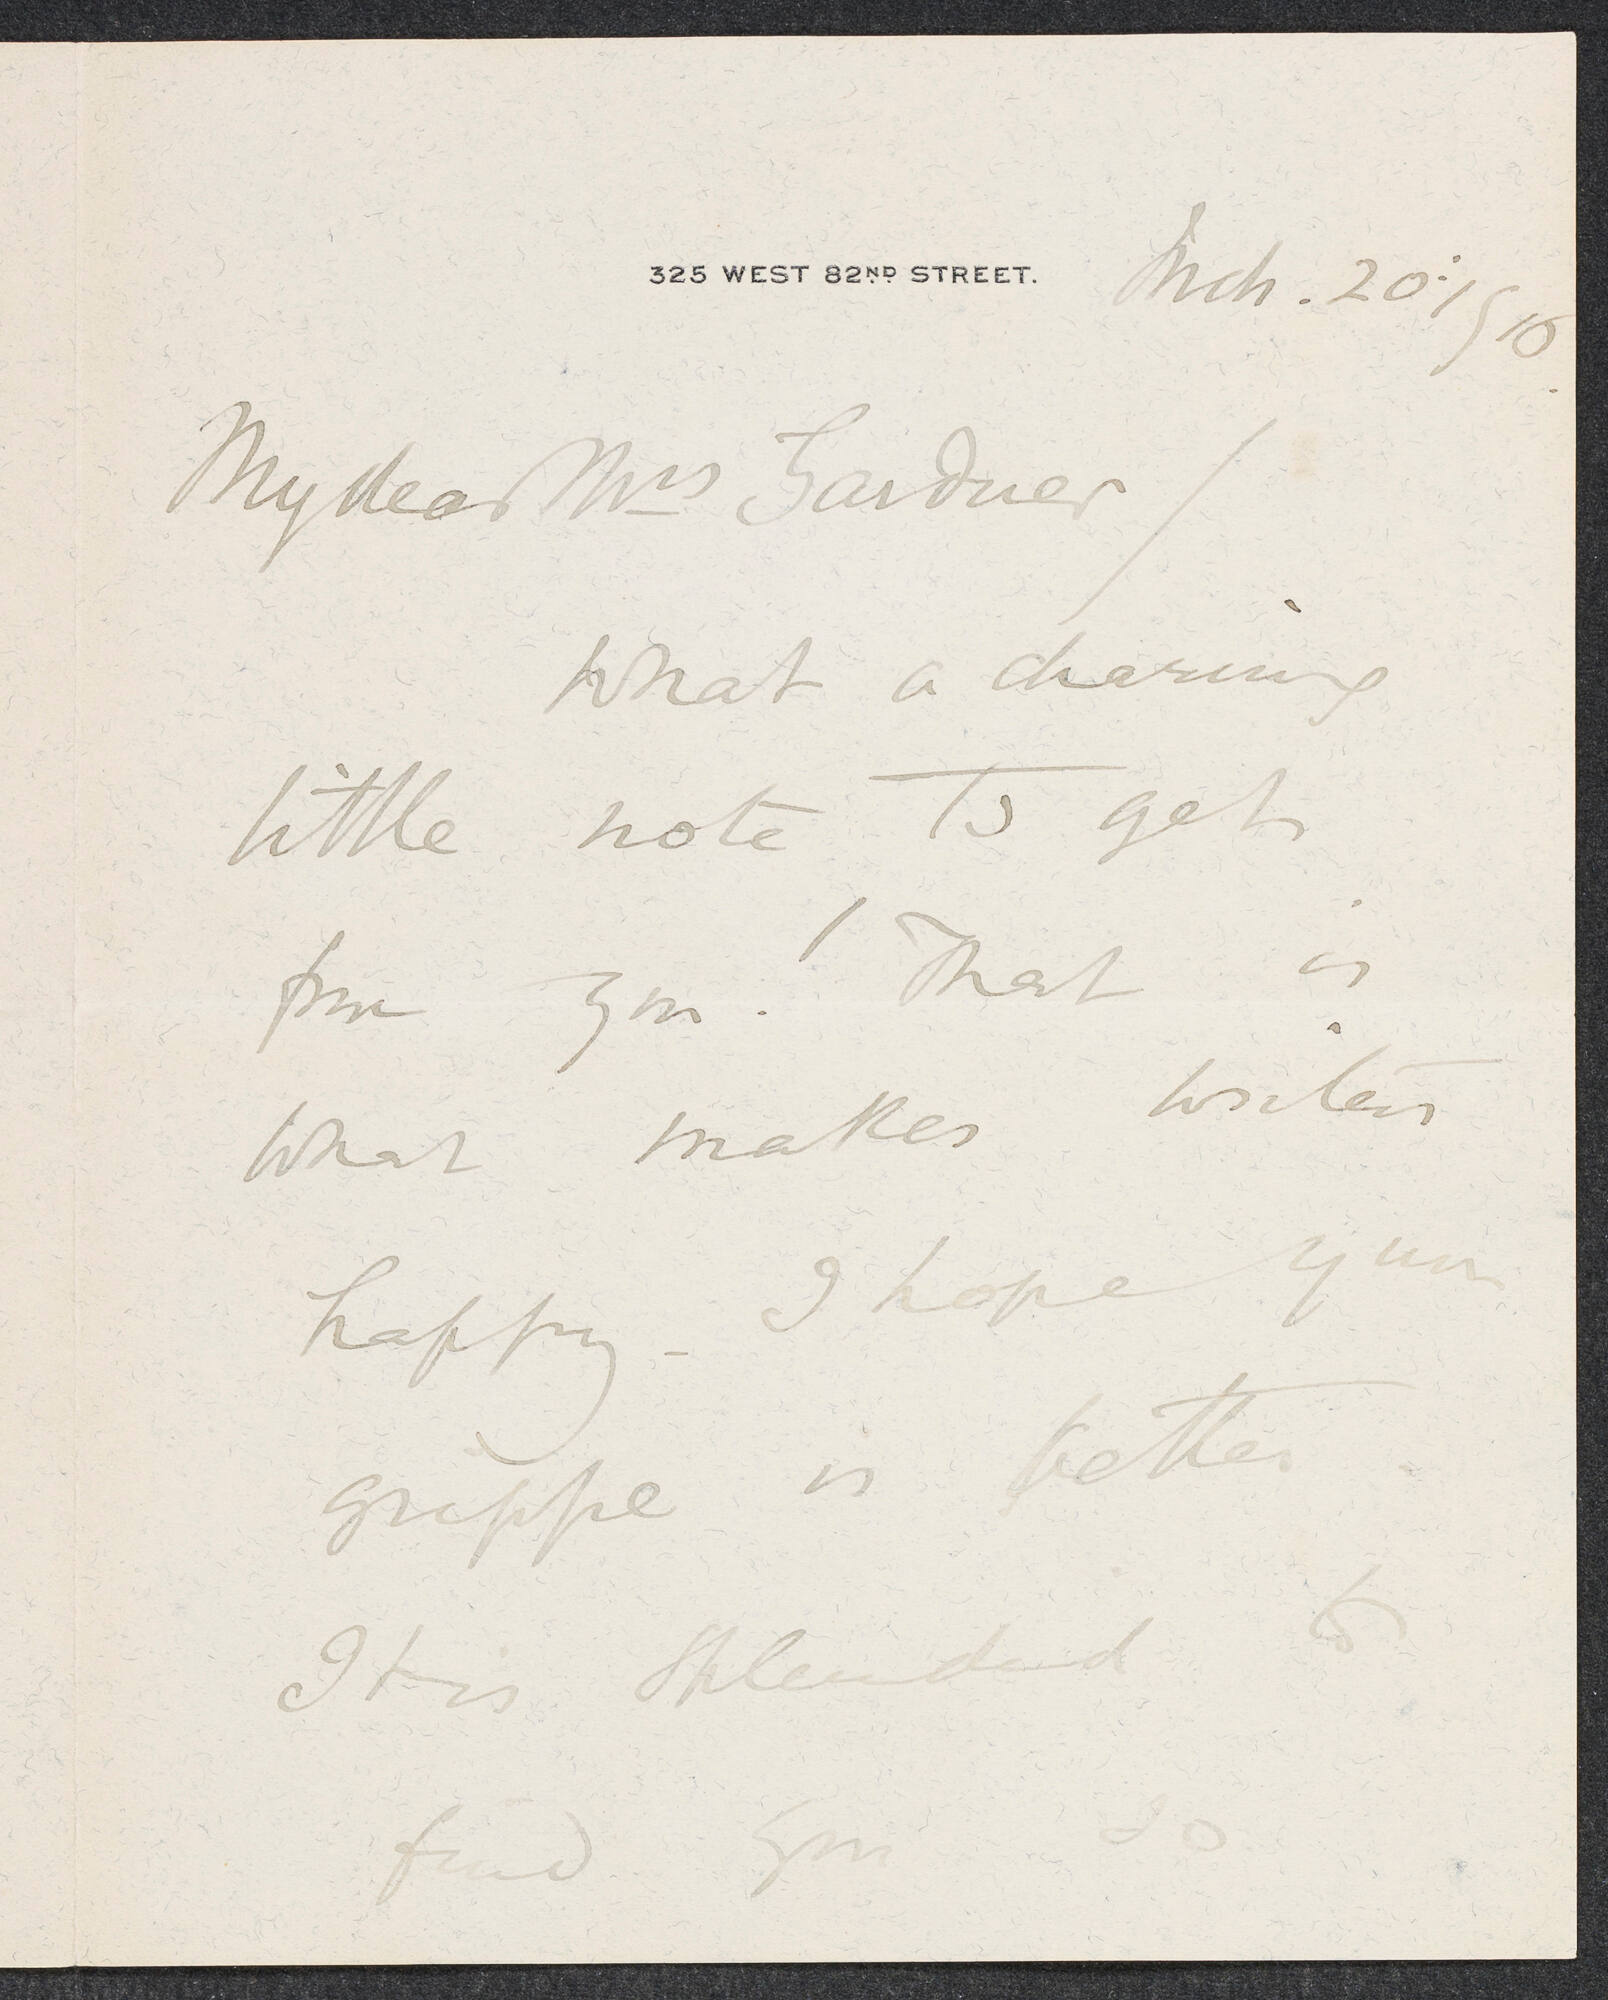 325 WEST 82ND STREET.
Mch. 20: 1910.
My dear Mrs Gardner /
What a charming
little note to get
from you! That is
what makes writers
happy - I hope your
grippe is better
It is splendid to
find you so